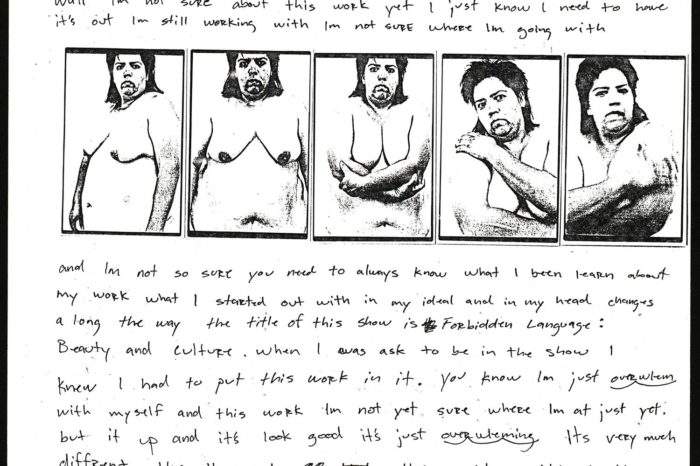 Well Im not sure about this work yet I just know I need to have
it's out Im still working with Im not sure where Im going with
and Im not so sure you need to always know what I been learn about
my work what I started out with in my ideal and in my head changes
a long the way the title of this show is Forbidden Language:
Beauty and culture. when I was ask to be in the show I
knew I had to put this work in it. you know Im just overwhelm
with myself and this work Im not yet sure where Im at just yet.
but it up and it's look good it's just overwleming Its very much
different